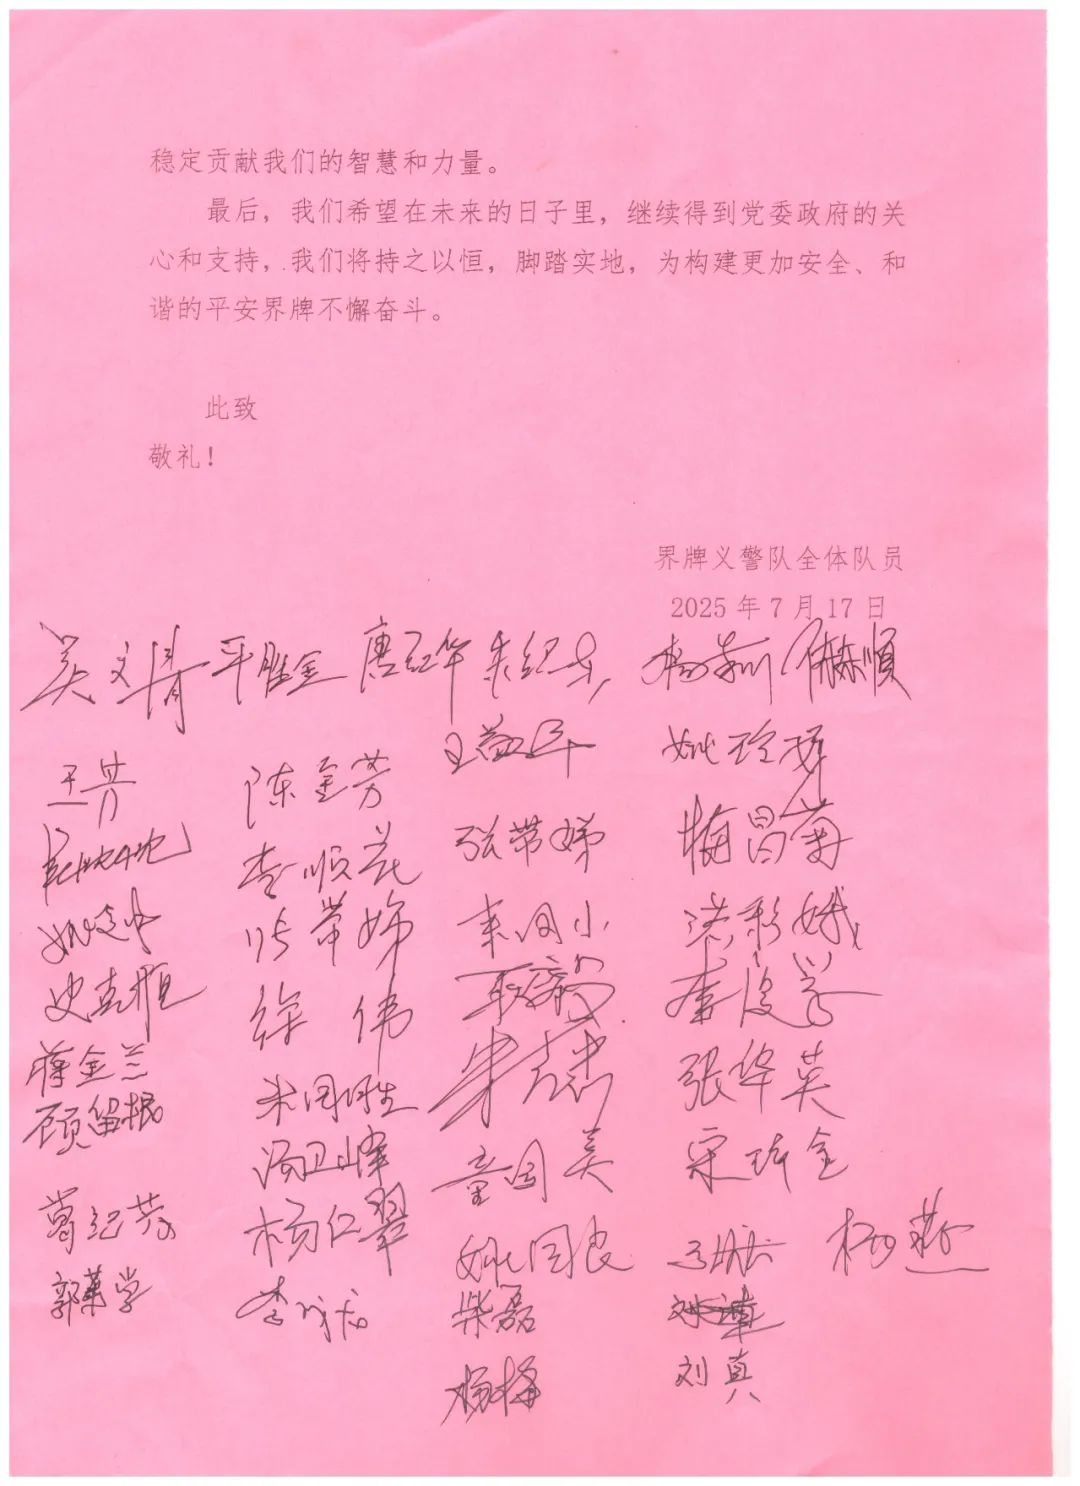 稳定贡献我们的智慧和力量。
最后，我们希望在未来的日子里，继续得到党委政府的关
心和支持，我们将持之以恒，脚踏实地，为构建更加安全、和
谐的平安界牌不懈奋斗。
此致
敬礼！
界牌义警队全体队员
2025年7月17日
吴文清 平胜金 唐红华 朱纪东
王芳 陈金芳 姚玲妹
李顺花 张带娣 梅昌菊
张带娣 来闰小 洪彩娥
徐伟
蒋金兰 张华英
顾留根
汤卫峰 童国英 宋琦金
葛纪芳 杨仁翠 姚国良 杨燕
郭菊学 柴磊
杨梅 刘真